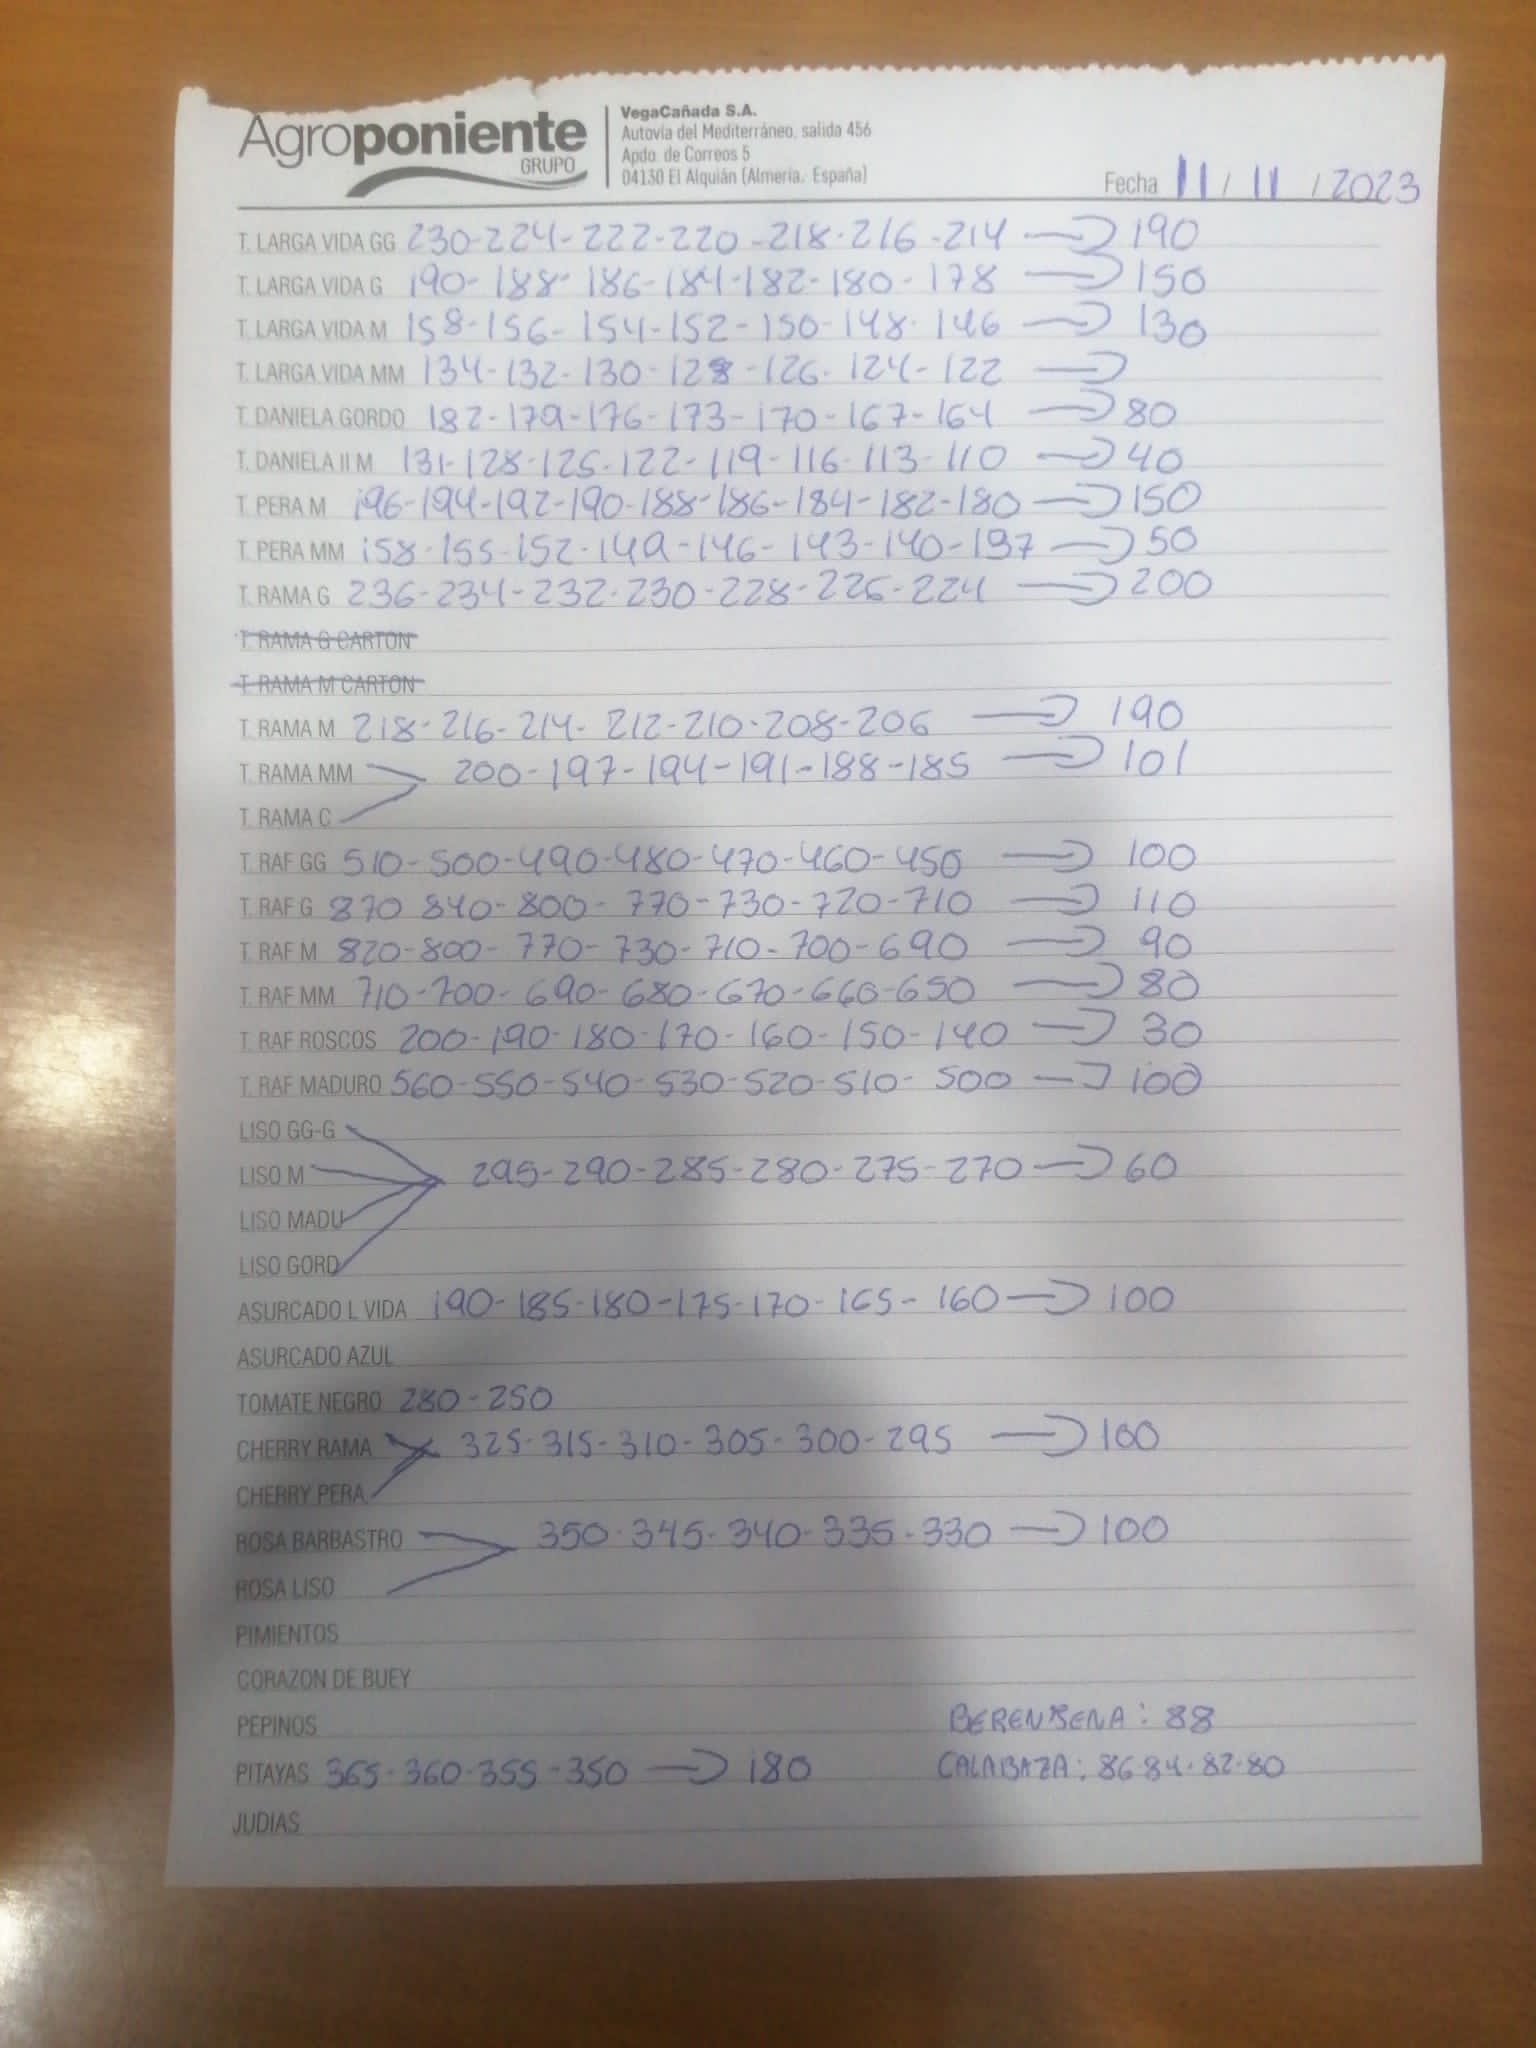 Agroponiente
GRUPO
VegaCañada S.A.
Autovía del Mediterráneo, salida 456
Apdo. de Correos 5
04130 El Alquián (Almería, España)
Fecha 11 / 11 / 2023
T. LARGA VIDA GG 230-224-222-220-218-216-214 → 190
T. LARGA VIDA G 190-188-186-184-182-180-178 → 150
T. LARGA VIDA M 158-156-154-152-150-148-146 → 130
T. LARGA VIDA MM 134-132-130-128-126-124-122 →
T. DANIELA GORDO 182-179-176-173-170-167-164 → 80
T. DANIELA II M 131-128-125-122-119-116-113-110 → 40
T. PERA M 196-194-192-190-188-186-184-182-180 → 150
T. PERA MM 158-155-152-149-146-143-140-137 → 50
T. RAMA G 236-234-232-230-228-226-224 → 200
T. RAMA G CARTON
T. RAMA M CARTON
T. RAMA M 218-216-214-212-210-208-206 → 190
T. RAMA MM 200-197-194-191-188-185 → 101
T. RAMA C
T. RAF GG 510-500-490-480-470-460-450 → 100
T. RAF G 870 840-800-770-730-720-710 → 110
T. RAF M 820-800-770-730-710-700-690 → 90
T. RAF MM 710-700-690-680-670-660-650 → 80
T. RAF ROSCOS 200-190-180-170-160-150-140 → 30
T. RAF MADURO 560-550-540-530-520-510-500 → 100
LISO GG-G
LISO M 295-290-285-280-275-270 → 60
LISO MADU
LISO GORD
ASURCADO L VIDA 190-185-180-175-170-165-160 → 100
ASURCADO AZUL
TOMATE NEGRO 280-250
CHERRY RAMA 325-315-310-305-300-295 → 100
CHERRY PERA
ROSA BARBASTRO 350-345-340-335-330 → 100
ROSA LISO
PIMIENTOS
CORAZON DE BUEY
PEPINOS BERENGENA: 88
PITAYAS 365-360-355-350 → 180 CALABAZA: 86-84-82-80
JUDIAS